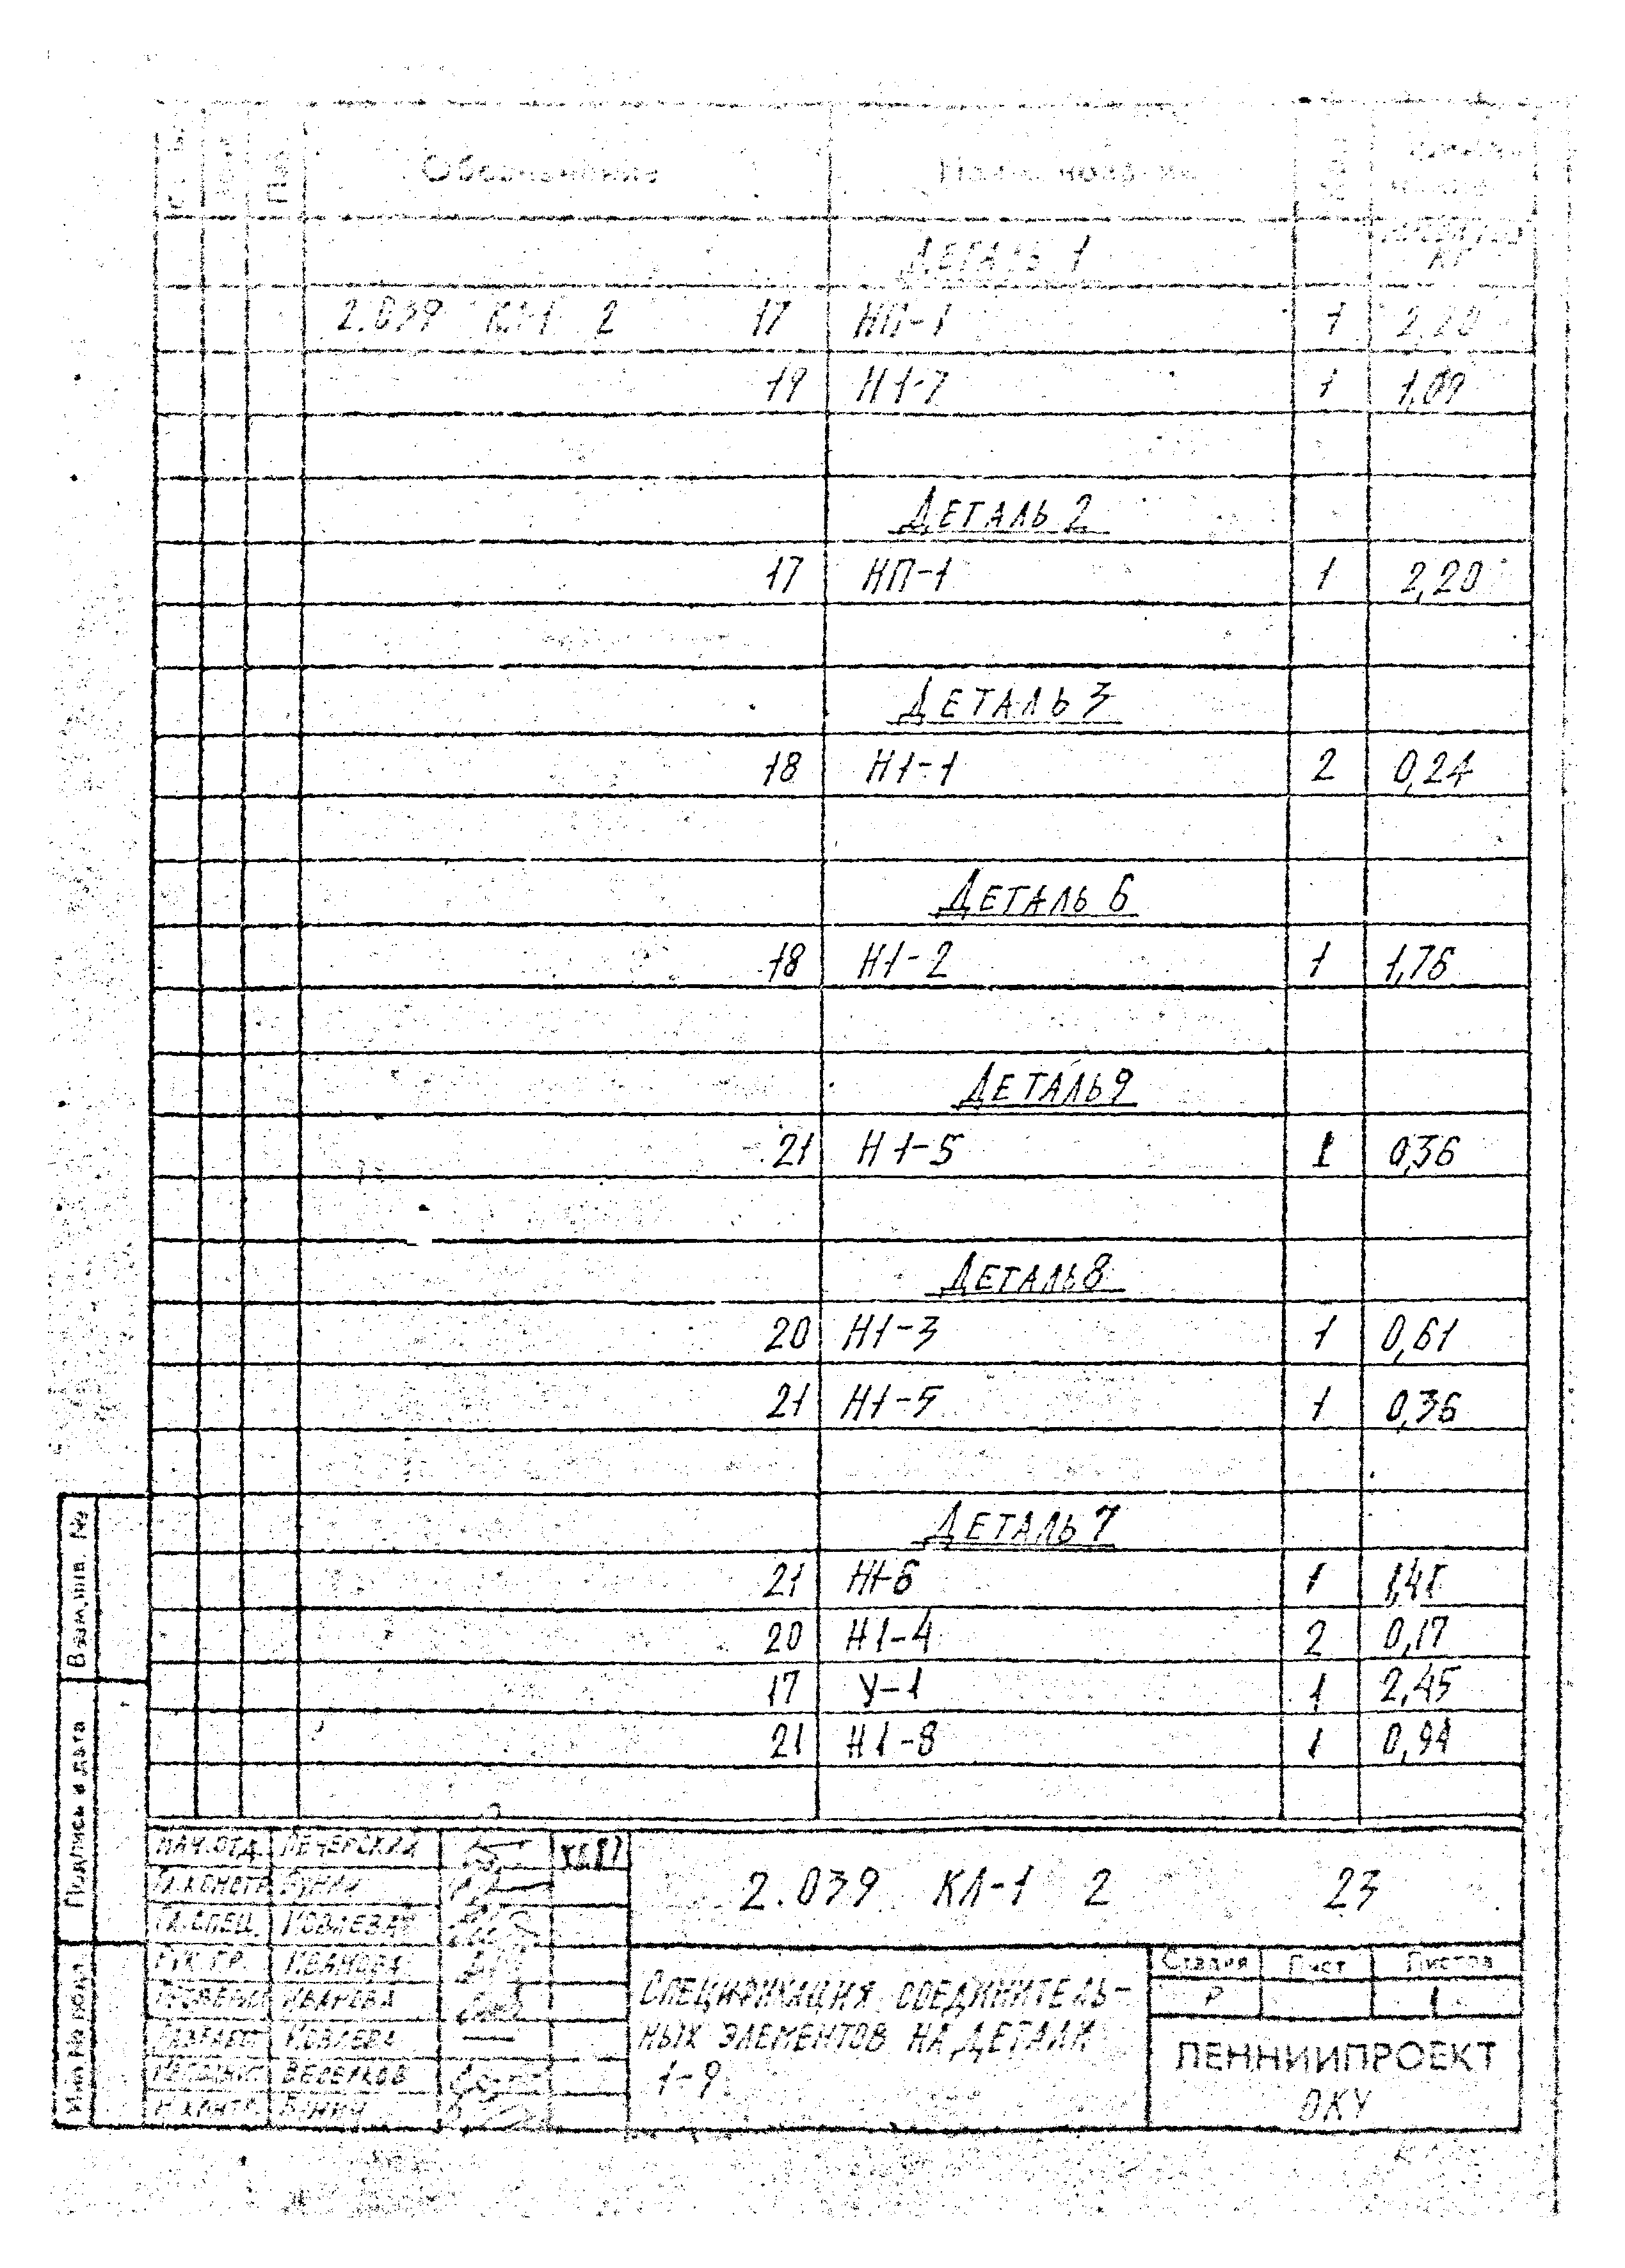 Обозначение Наименование
ДЕТАЛЬ 1 КГ
2.039 КЛ-1 2 17 НП-1 1 2,20
19 Н1-7 1 1,09
ДЕТАЛЬ 2
17 НП-1 1 2,20
ДЕТАЛЬ 3
18 Н1-1 2 0,24
ДЕТАЛЬ 6
18 Н1-2 1 1,76
ДЕТАЛЬ 9
21 Н1-5 1 0,36
ДЕТАЛЬ 8
20 Н1-3 1 0,61
21 Н1-5 1 0,36
ДЕТАЛЬ 7
21 Н1-6 1 1,41
20 Н1-4 2 0,17
17 У-1 1 2,45
21 Н1-8 1 0,94
Взам. инв. №
Подпись и дата
Инв. № подл.
НАЧ.ОТД. ПЕЧЕРСКИЙ
ГЛ.КОНСТР. БУНИЧ
ГЛ.СПЕЦ. КОВАЛЕВА
РУК.ГР. ИВАНОВА
ПРОВЕРИЛ ИВАНОВА
КОВАЛЕВА
ВЕСЕЛКОВ
Н.КОНТР. БУНИЧ
2.039 КЛ-1 2 23
СПЕЦИФИКАЦИЯ СОЕДИНИТЕЛЬ-
НЫХ ЭЛЕМЕНТОВ НА ДЕТАЛИ
1-9.
Стадия Лист Листов
Р 1
ЛЕННИИПРОЕКТ
ОКУ